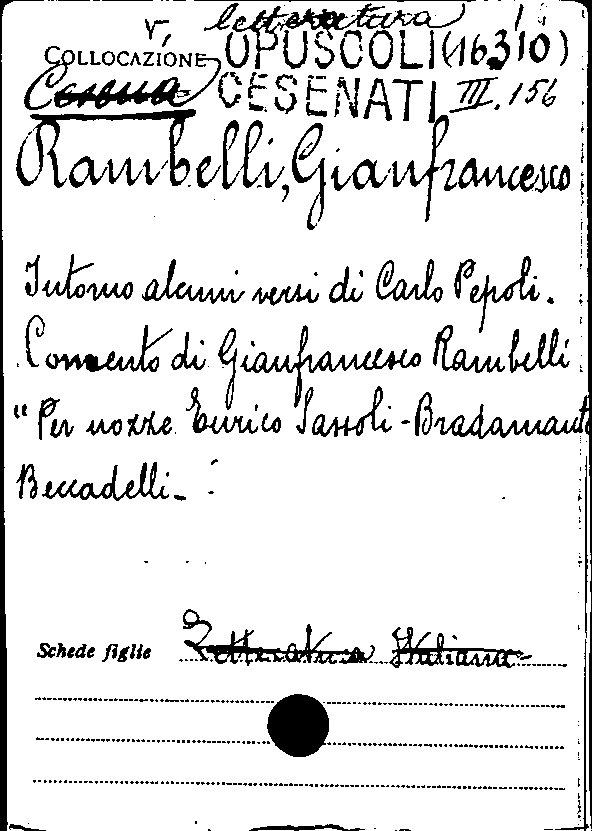 v, letteratura
COLLOCAZIONE OPUSCOLI (16310)
Cesena CESENATI III. 156
Rambelli, Gianfrancesco
Intorno alcuni versi di Carlo Pepoli.
Comento di Gianfrancesco Rambelli
"Per nozze Enrico Sassoli-Bradamante
Beccadelli_
Schede figlie Letteratura Italiana-